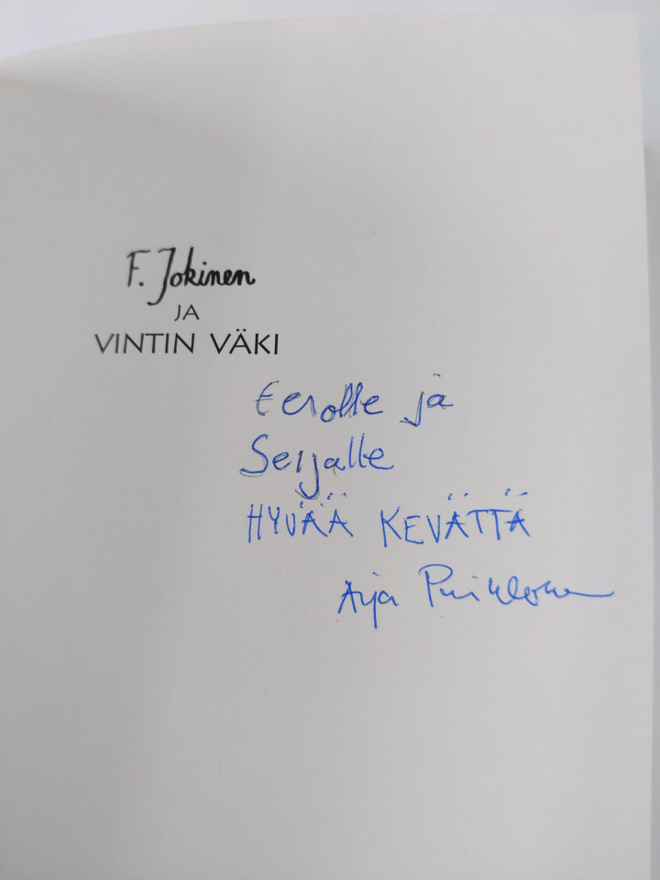 F. Jokinen
JA
VINTIN VÄKI
Eerolle ja
Seijalle
HYVÄÄ KEVÄTTÄ
Arja Puikkonen